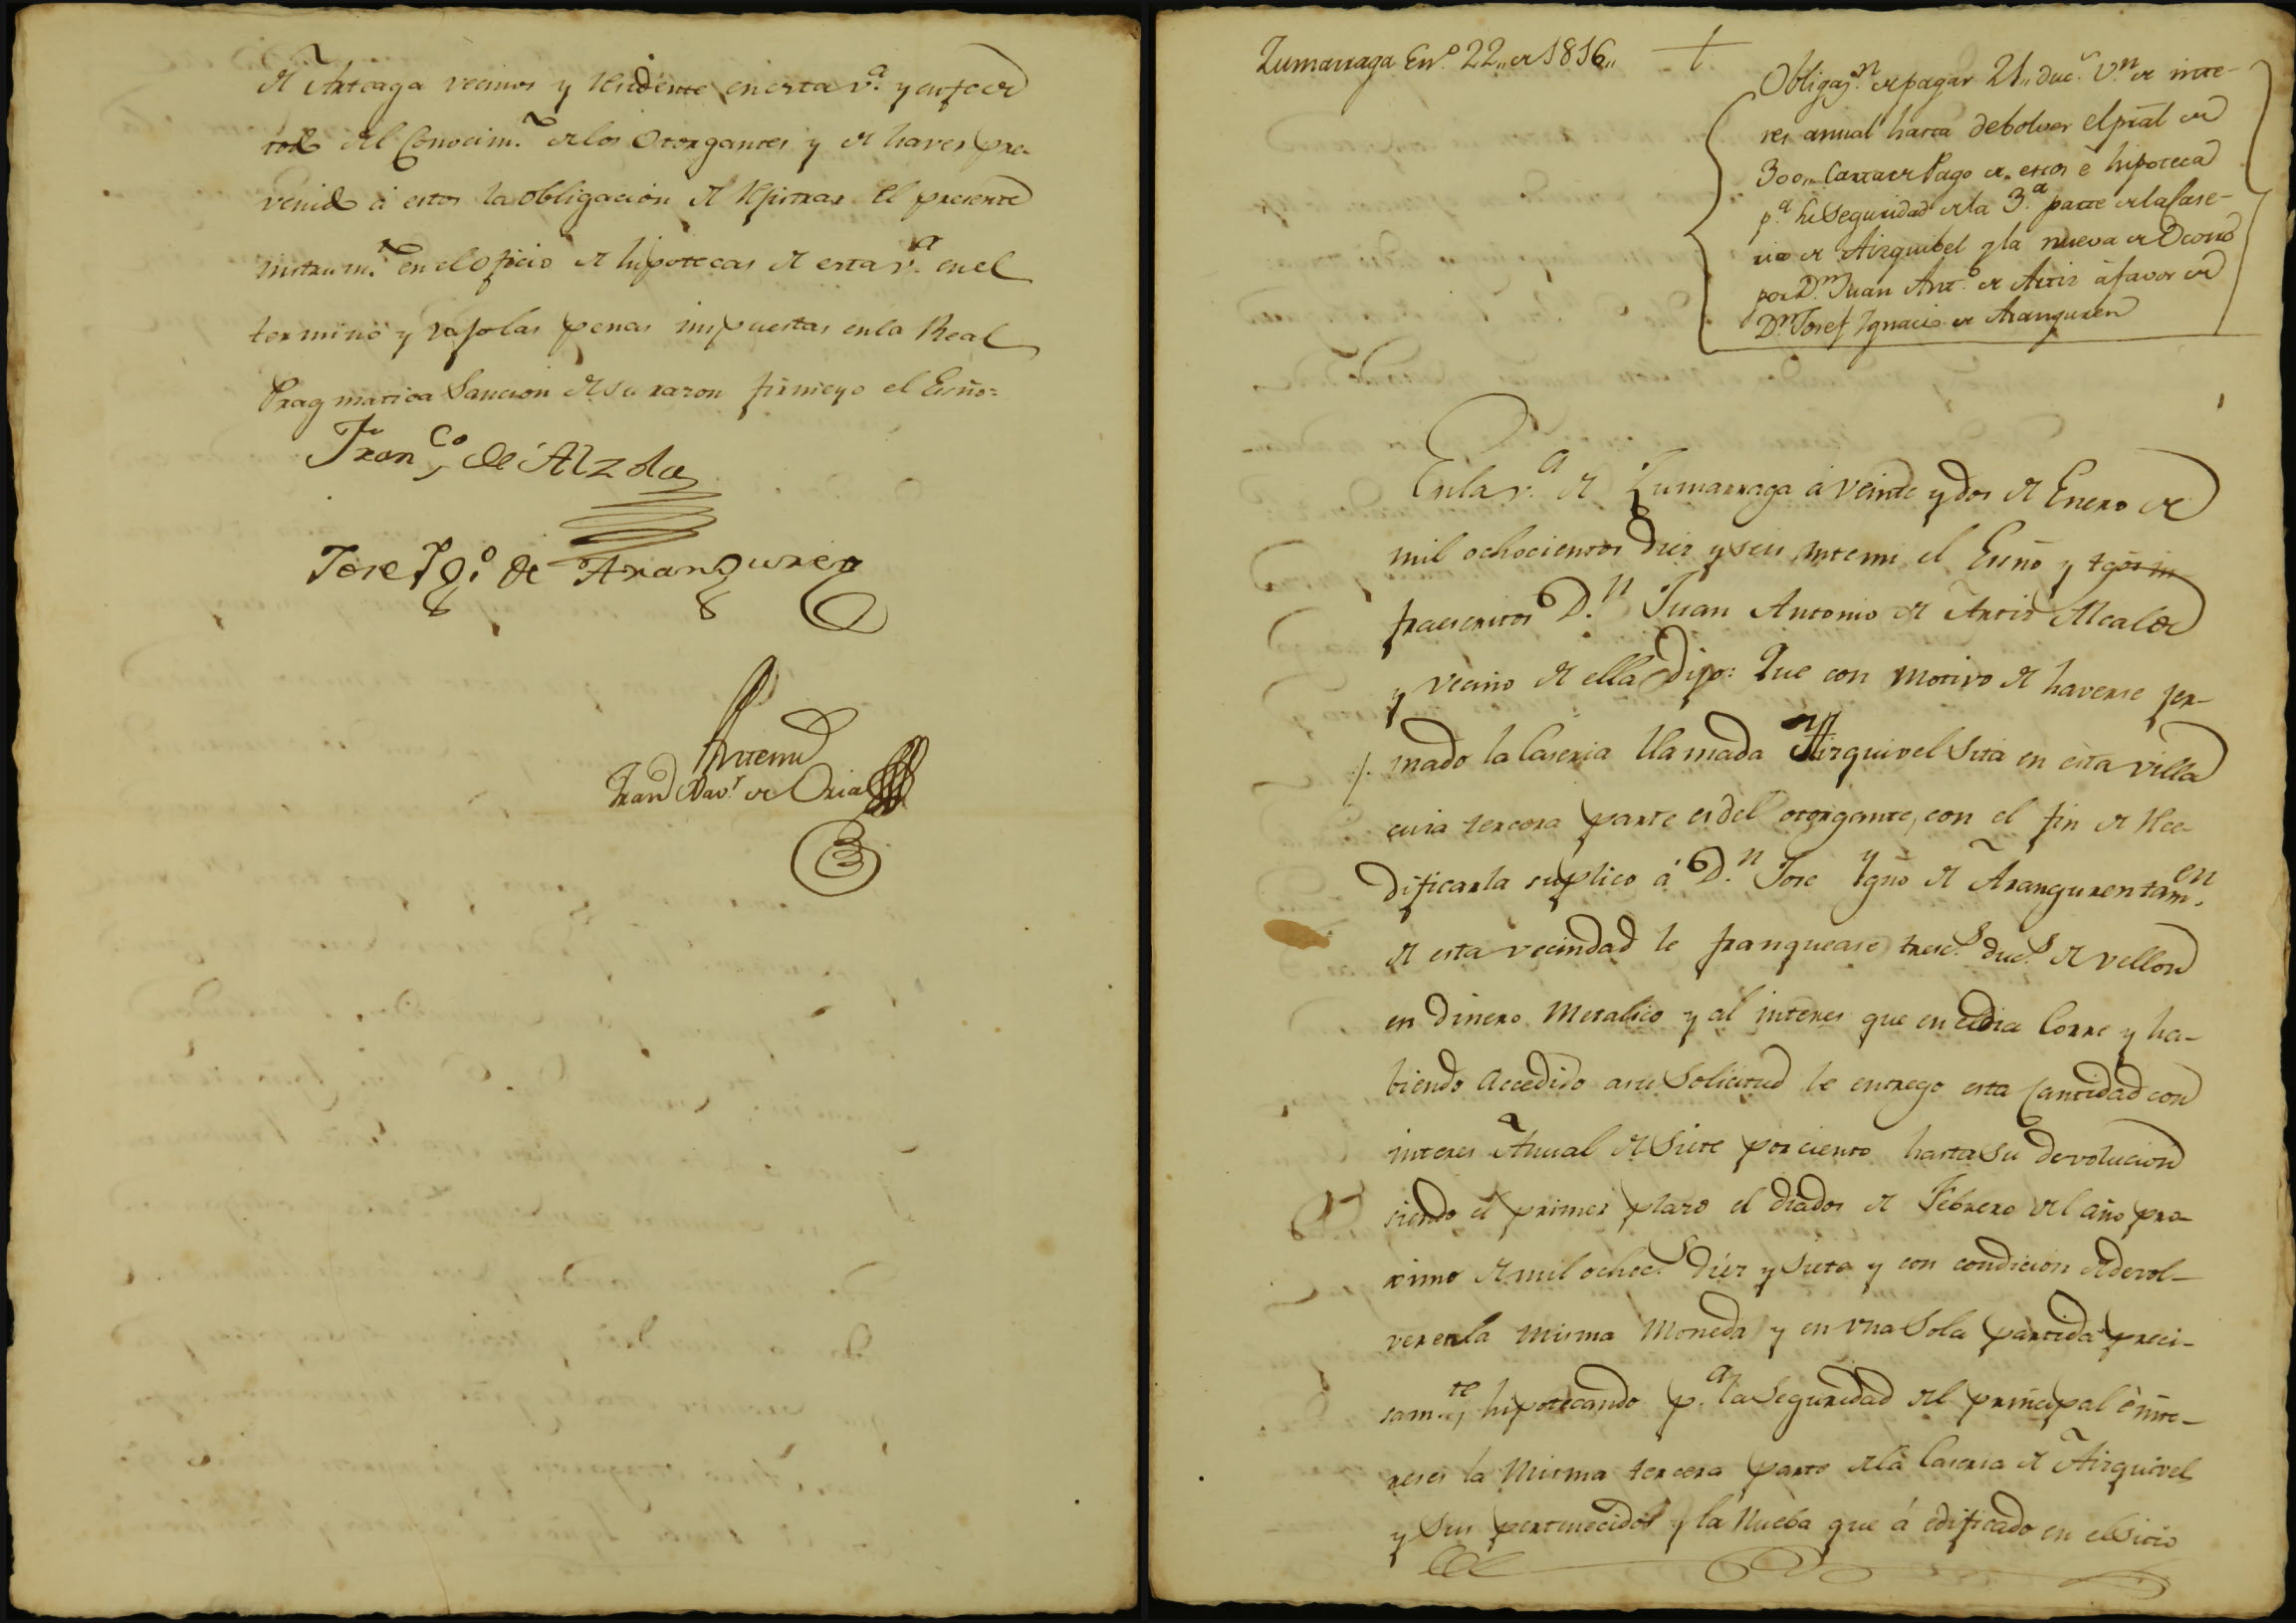 de Arteaga vecinos y residente en esta v.ª y en fee de
todo del Conocim.to de los Otorgantes y de haver pre-
venido á estos la obligacion de rejistrar el presente
instrum.to en el oficio de hipotecas de esta v.ª en el
termino y vajo las penas impuestas en la Real
Pragmatica Sancion de su razon firme yo el Essno=
Fran.co de Alzola
Jose Ygº de Aranguren
Antemi
Fran.co Xav.r de Oria
Zumarraga En.º 22,, de 1816,,
Obligaz.n de pagar 21,, duc.s v.n de inte-
res anual hasta debolver el pral de
300,, Carta de Pago de estos é hipoteca
p.ª su seguridad de la 3.ª parte de la Case-
ria de Aizquibel y la nueva de
por D.n Juan Ant.º de Artiz á favor de
D.n Josef Ygnacio de Aranguren
En la v.ª de Zumarraga á veinte y dos de Enero de
mil ochocientos diez y seis ante mi el Essno y tgos in
fraescritos D.n Juan Antonio de Artiz Alcalde
y vecino de ella Dijo: Que con motivo de haverse
mado la Caseria llamada Aizquivel sita en esta villa
cuia tercera parte es del otorgante, con el fin de ree-
dificarla suplico á D.n Jose Ygno de Aranguren tam.en
de esta vecindad le franquease tresc.s duc.s de vellon
en dinero Metalico y al interes que en el dia Corre y ha-
biendo accedido a su Solicitud le entrego esta Cantidad con
interes Anual de Siete por ciento hasta su devolucion
siendo el primer plazo el dia dos de Febrero del año pro-
ximo de mil ochoc.s diez y siete y con condicion de devol-
ver en la misma Moneda y en una Sola partida preci-
sam.te, hipotecando p.ª la Seguridad del principal é inte-
reses la Misma tercera parte de la Caseria de Aizquivel
y Sus pertenecidos y la Nueba que á edificado en el Sitio